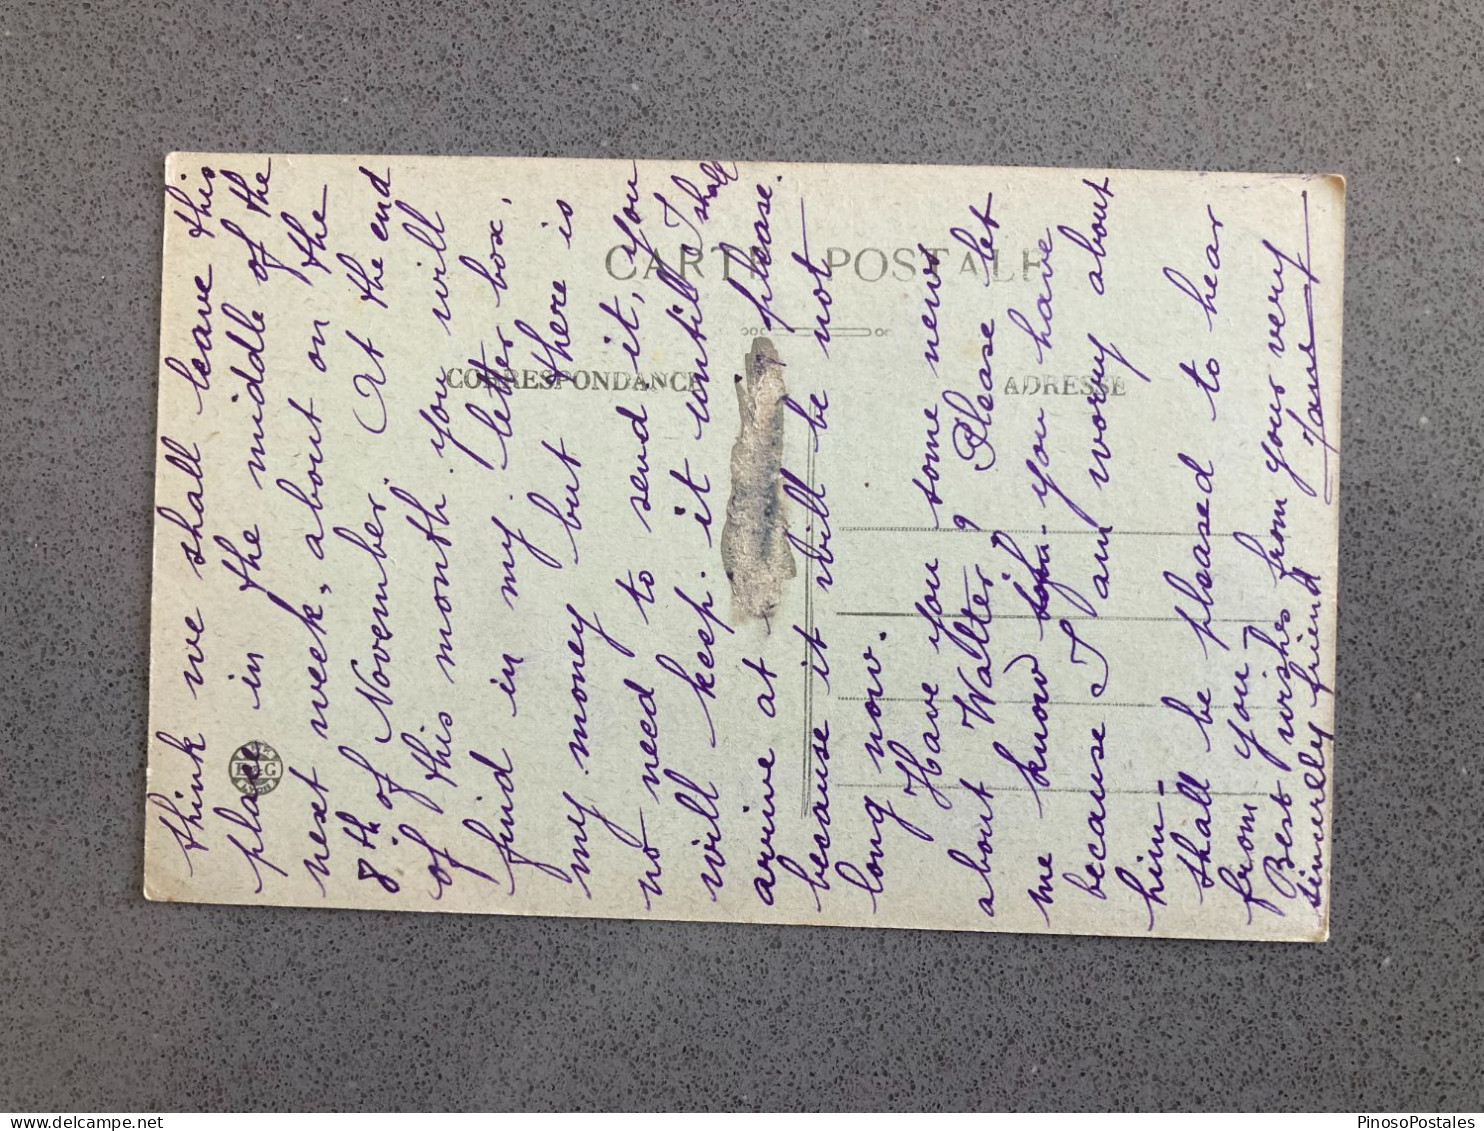 think we shall leave this
place in the middle of the
next week, about on the
8th of November. At the end
of this month you will
find in my letter box,
my money but there is
no need to send it, you
will keep it untill I shall
arrive at please.
because it will be not
long now.
Have you some news
about Walter? Please let
me know if you have
because I am worry about
him.
shall be pleased to hear
from you.
Best wishes from your very
sincerelly friend
CARTE POSTALE
CORRESPONDANCE
ADRESSE
PinosoPostales